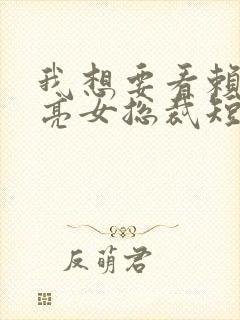 我想要看賴
亮女总裁短
反萌君